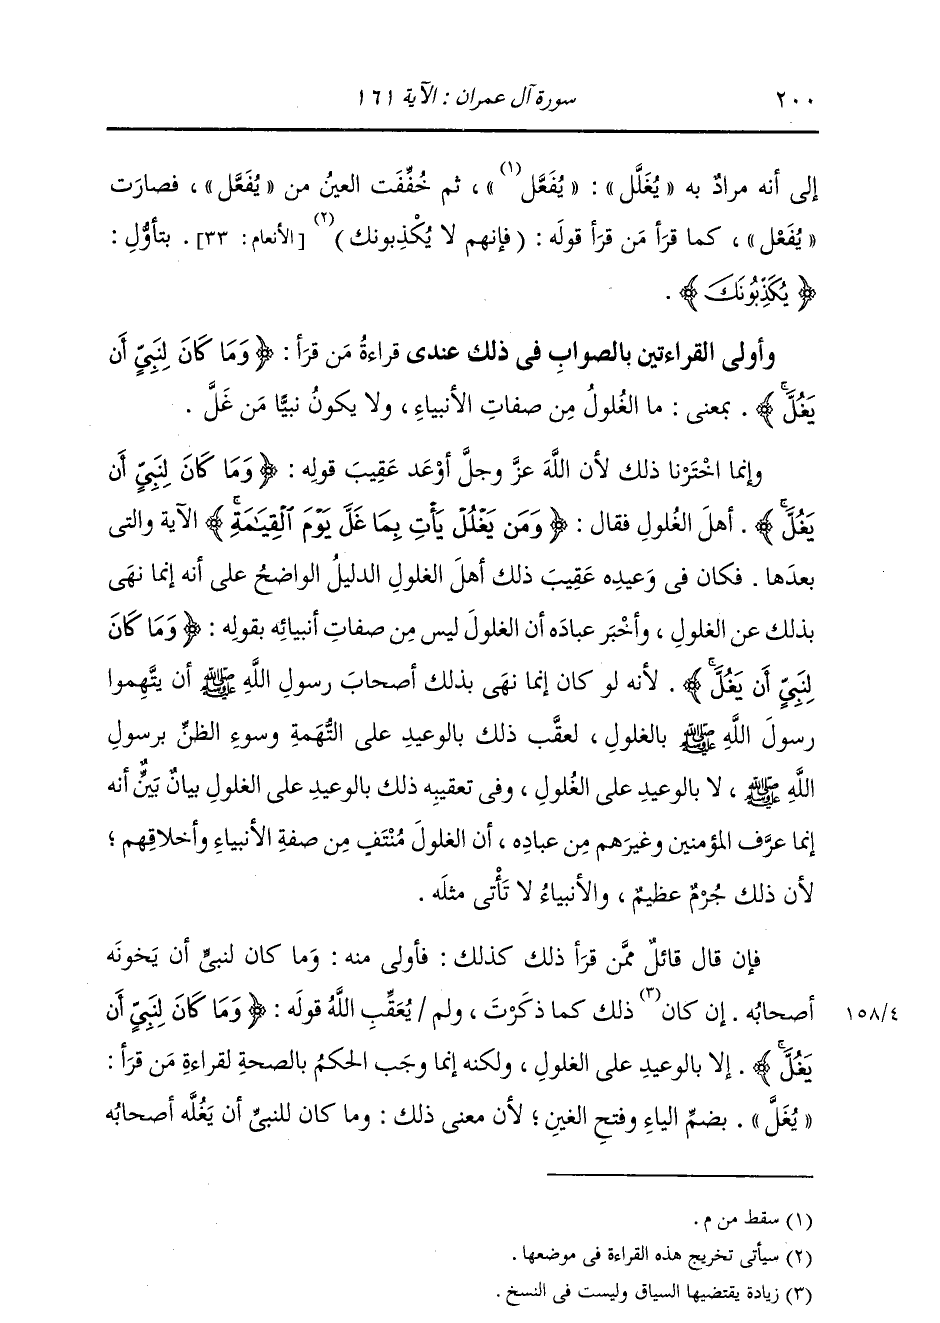 ٢٠٠ سورة آل عمران : الآية ١٦١
إلى أنه مرادٌ به « يُغَلَّل » : « يُفَعَّل (١) » ، ثم خُفِّفَت العينُ من « يُفَعَّل » ، فصارَت
« يُفَعْل » ، كما قرَأ مَن قرَأ قولَه : ( فإنهم لا يُكْذِبونك ) (٢) [الأنعام : ٣٣] . بتأوُّلِ :
﴿ يُكَذِّبُونَكَ ﴾ .
وأولى القراءتين بالصوابِ فى ذلك عندى قراءةُ مَن قرَأ : ﴿ وَمَا كَانَ لِنَبِيٍّ أَن
يَغُلَّ ۚ ﴾ . بمعنى : ما الغُلولُ مِن صفاتِ الأنبياءِ ، ولا يكونُ نبيًّا مَن غَلَّ .
وإنما اخْتَرْنا ذلك لأن اللَّهَ عزَّ وجلَّ أوْعَد عَقِيبَ قولِه : ﴿ وَمَا كَانَ لِنَبِيٍّ أَن
يَغُلَّ ۚ ﴾ . أهلَ الغُلولِ فقال : ﴿ وَمَن يَغْلُلْ يَأْتِ بِمَا غَلَّ يَوْمَ ٱلْقِيَٰمَةِ ۚ ﴾ الآية والتى
بعدَها . فكان فى وَعيدِه عَقِيبَ ذلك أهلَ الغلولِ الدليلُ الواضحُ على أنه إنما نهَى
بذلك عن الغلولِ ، وأخْبَر عبادَه أن الغلولَ ليس مِن صفاتِ أنبيائِه بقولِه : ﴿ وَمَا كَانَ
لِنَبِيٍّ أَن يَغُلَّ ۚ ﴾ . لأنه لو كان إنما نهَى بذلك أصحابَ رسولِ اللَّهِ ﷺ أن يتَّهِموا
رسولَ اللَّهِ ﷺ بالغلولِ ، لعقَّب ذلك بالوعيدِ على التُّهَمةِ وسوءِ الظنِّ برسولِ
اللَّهِ ﷺ ، لا بالوعيدِ على الغُلولِ ، وفى تعقيبِه ذلك بالوعيدِ على الغلولِ بيانٌ بَيِّنٌ أنه
إنما عرَّف المؤمنين وغيرَهم مِن عبادِه ، أن الغلولَ مُنْتَفٍ مِن صفةِ الأنبياءِ وأخلاقِهم ؛
لأن ذلك جُرْمٌ عظيمٌ ، والأنبياءُ لا تَأْتى مثلَه .
فإن قال قائلٌ ممَّن قرَأ ذلك كذلك : فأولى منه : وَما كان لنبىٍّ أن يَخونَه
أصحابُه . إن كان (٣) ذلك كما ذكَرْتَ ، ولم / يُعَقِّبِ اللَّهُ قولَه : ﴿ وَمَا كَانَ لِنَبِيٍّ أَن ١٥٨/٤
يَغُلَّ ۚ ﴾ . إلا بالوعيدِ على الغلولِ ، ولكنه إنما وجَب الحكمُ بالصحةِ لقراءةِ مَن قرَأ :
« يُغَلَّ » . بضمِّ الياءِ وفتحِ الغينِ ؛ لأن معنى ذلك : وما كان للنبىِّ أن يَغُلَّه أصحابُه
(١) سقط من م .
(٢) سيأتى تخريج هذه القراءة فى موضعها .
(٣) زيادة يقتضيها السياق وليست فى النسخ .